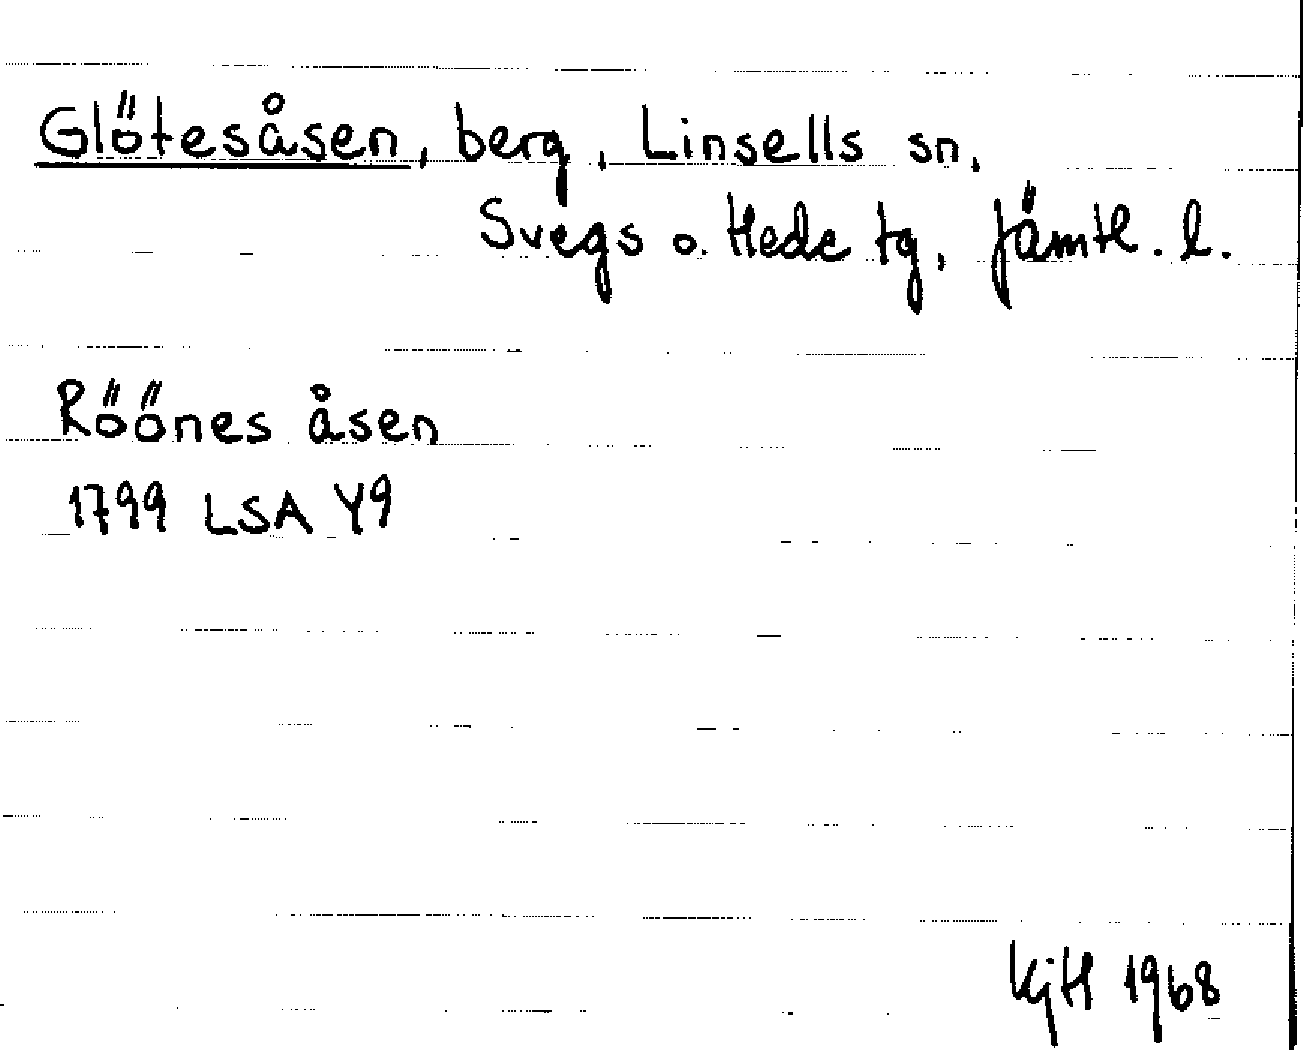 Glötesåsen, berg, Linsells sn,
Svegs o. Hede tg, Jämtl. l.
Röönes åsen
1799 LSA Y9
KjH 1968